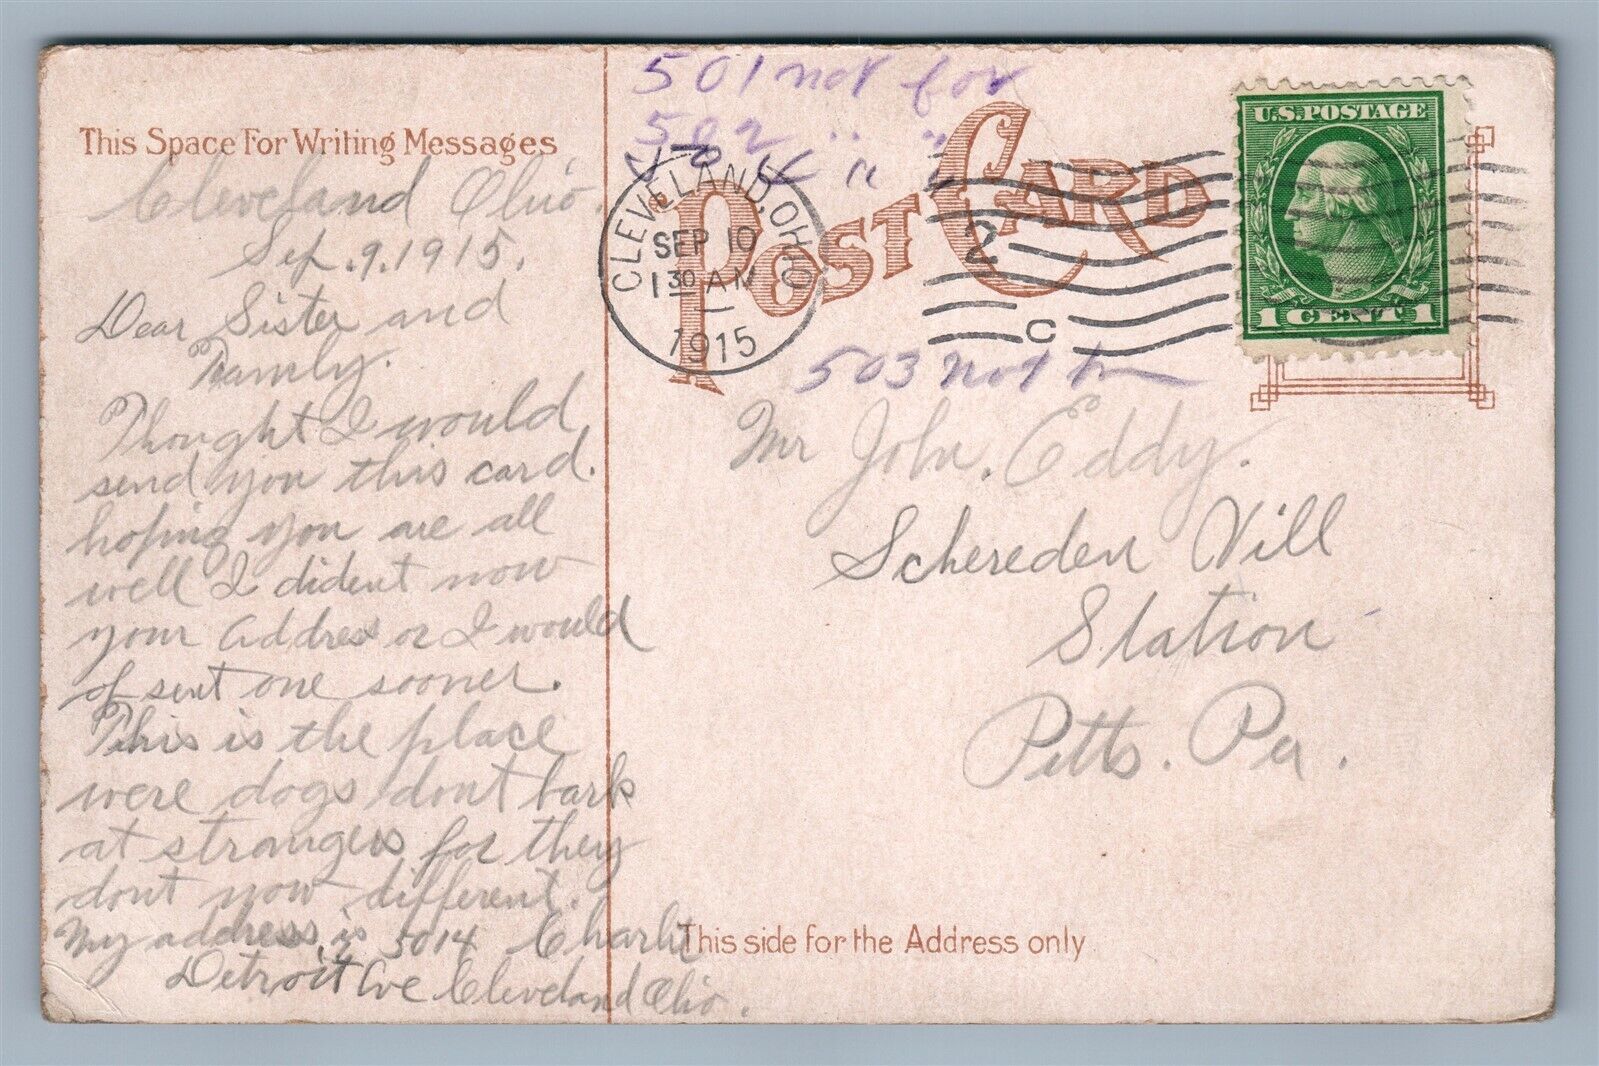 This Space For Writing Messages
Cleveland Ohio.
Sep. 9. 1915.
Dear Sister and
Family.
Thought I would
send you this card.
hoping you are all
well I dident now
your address or I would
of sent one sooner.
This is the place
were dogs dont bark
at strangers for they
dont now different.
My address is 5014 Charlie
Detroit Ave Cleveland Ohio.
501 not for
502 " "
504 " "
POST CARD
CLEVELAND, OHIO
SEP 10
1 30 AM
1915
2
C
U.S. POSTAGE
1 CENT 1
503 not
Mr John. Eddy.
Schereden Vill
Station
Pitts. Pa.
This side for the Address only